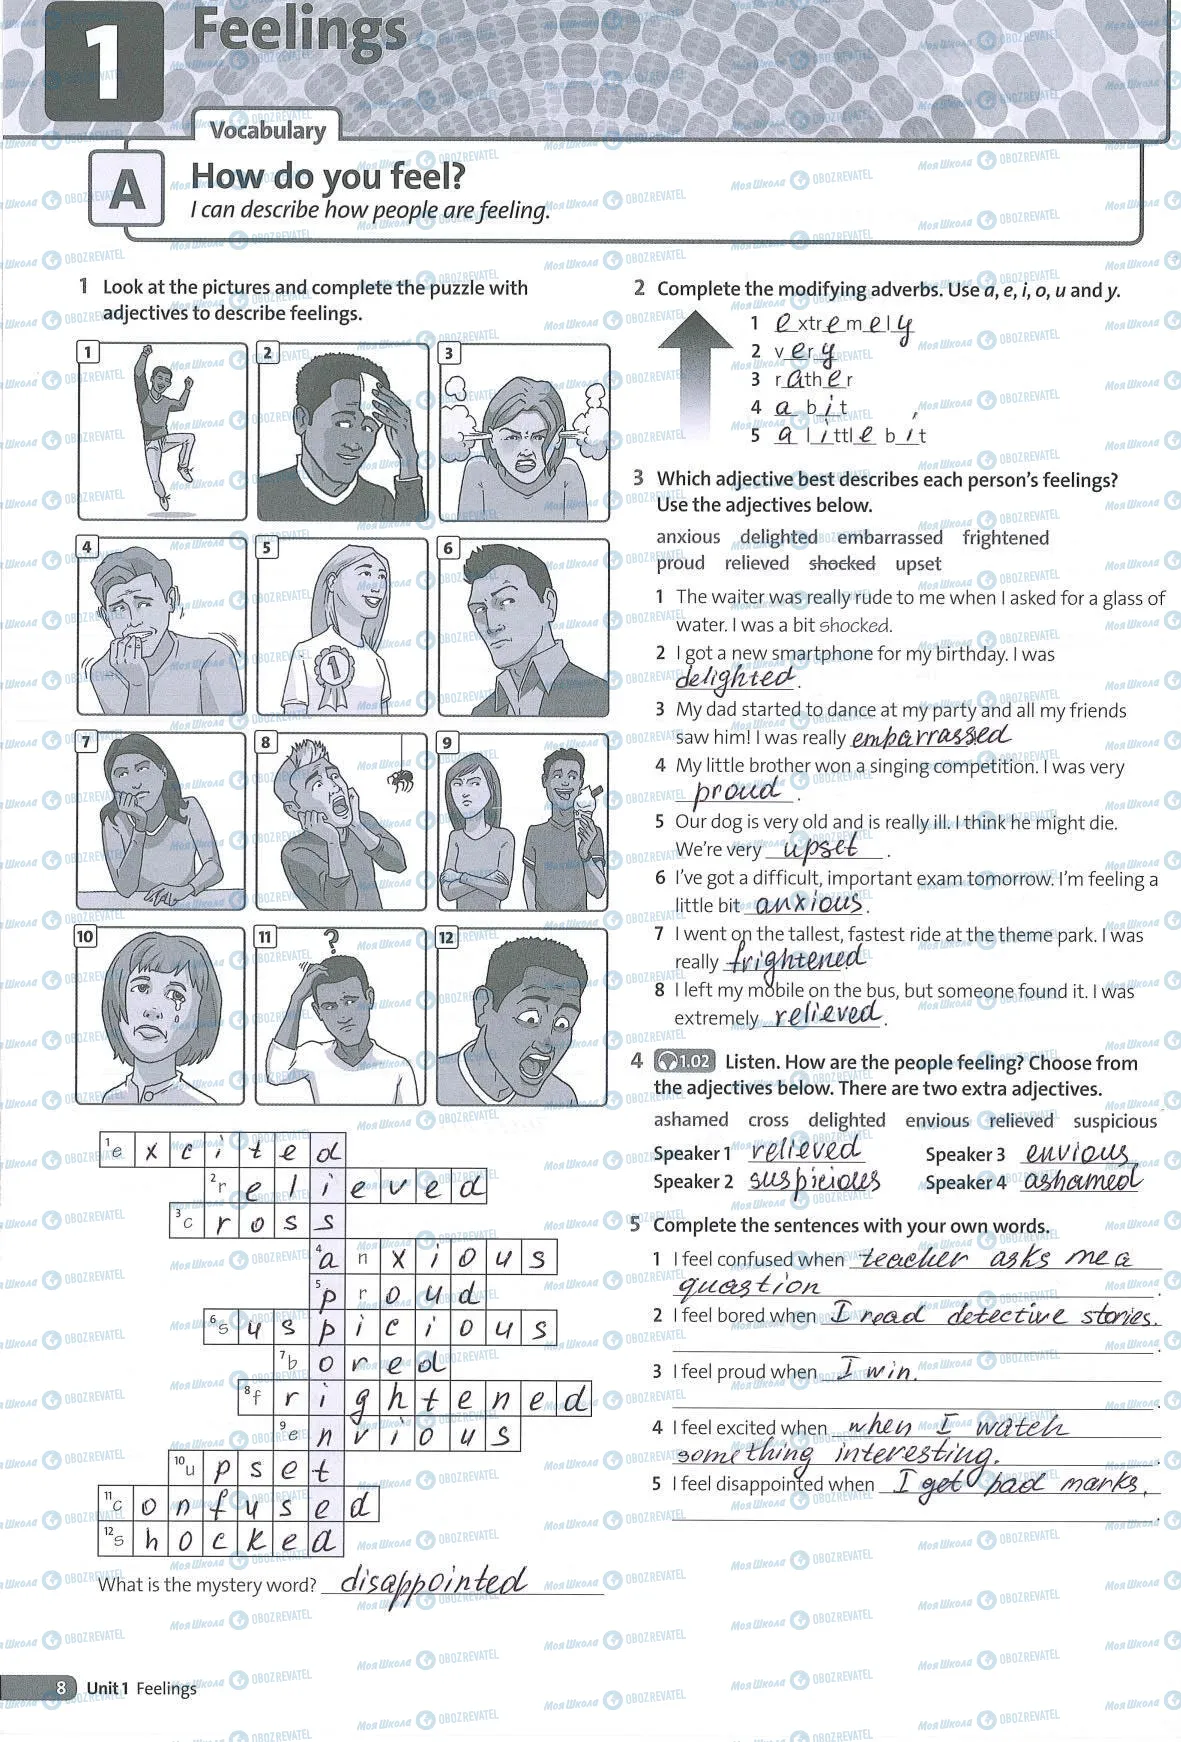 1
Feelings
Vocabulary
A
How do you feel?
I can describe how people are feeling.
1 Look at the pictures and complete the puzzle with
adjectives to describe feelings.
1 2 3
4 5 6
1
7 8 9
10 11 ? 12
1 e x c i t e d
2 r e l i e v e d
3 c r o s s
4 a n x i o u s
5 p r o u d
6 s u s p i c i o u s
7 b o r e d
8 f r i g h t e n e d
9 e n v i o u s
10 u p s e t
11 c o n f u s e d
12 s h o c k e d
What is the mystery word? disappointed
2 Complete the modifying adverbs. Use a, e, i, o, u and y.
1 extremely
2 very
3 rather
4 a bit
5 a little bit
3 Which adjective best describes each person's feelings?
Use the adjectives below.
anxious delighted embarrassed frightened
proud relieved shocked upset
1 The waiter was really rude to me when I asked for a glass of
water. I was a bit shocked.
2 I got a new smartphone for my birthday. I was
delighted.
3 My dad started to dance at my party and all my friends
saw him! I was really embarrassed
4 My little brother won a singing competition. I was very
proud.
5 Our dog is very old and is really ill. I think he might die.
We're very upset.
6 I've got a difficult, important exam tomorrow. I'm feeling a
little bit anxious.
7 I went on the tallest, fastest ride at the theme park. I was
really frightened
8 I left my mobile on the bus, but someone found it. I was
extremely relieved.
4 1.02 Listen. How are the people feeling? Choose from
the adjectives below. There are two extra adjectives.
ashamed cross delighted envious relieved suspicious
Speaker 1 relieved Speaker 3 envious
Speaker 2 suspicious Speaker 4 ashamed
5 Complete the sentences with your own words.
1 I feel confused when teacher asks me a
quastion.
2 I feel bored when I read detective stories.
.
3 I feel proud when I win.
.
4 I feel excited when when I watch
something interesting.
5 I feel disappointed when I get bad marks.
.
8 Unit 1 Feelings
Моя Школа OBOZREVATEL